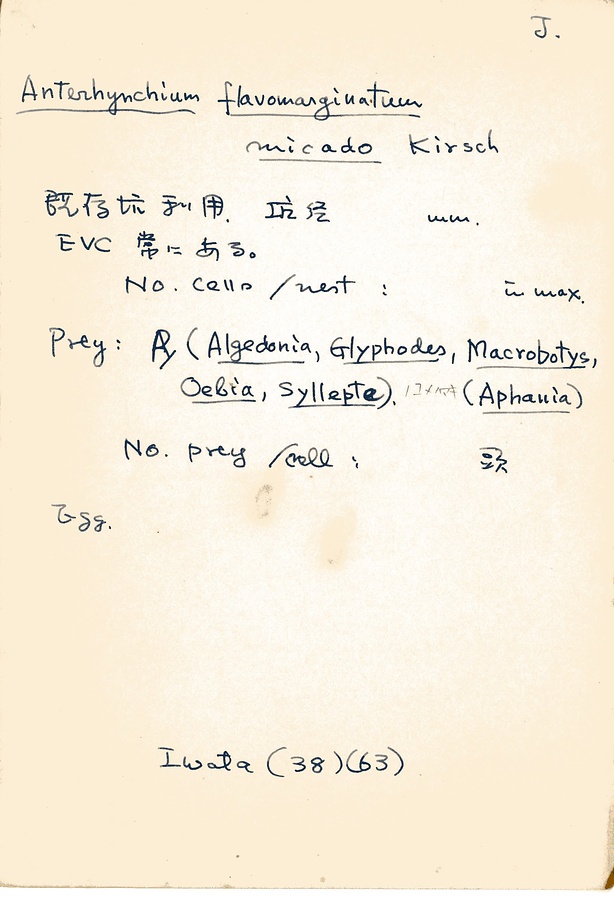 J.
Anterhynchium flavomarginatum
micado Kirsch
既存坑利用. 坑径 mm.
EVC 常にある。
No. cells /nest : in max.
Prey : Py (Algedonia, Glyphodes, Macrobotys,
Oebia, Syllepte). (Aphania)
No. prey /cell : 頭
Egg.
Iwata (38)(63)